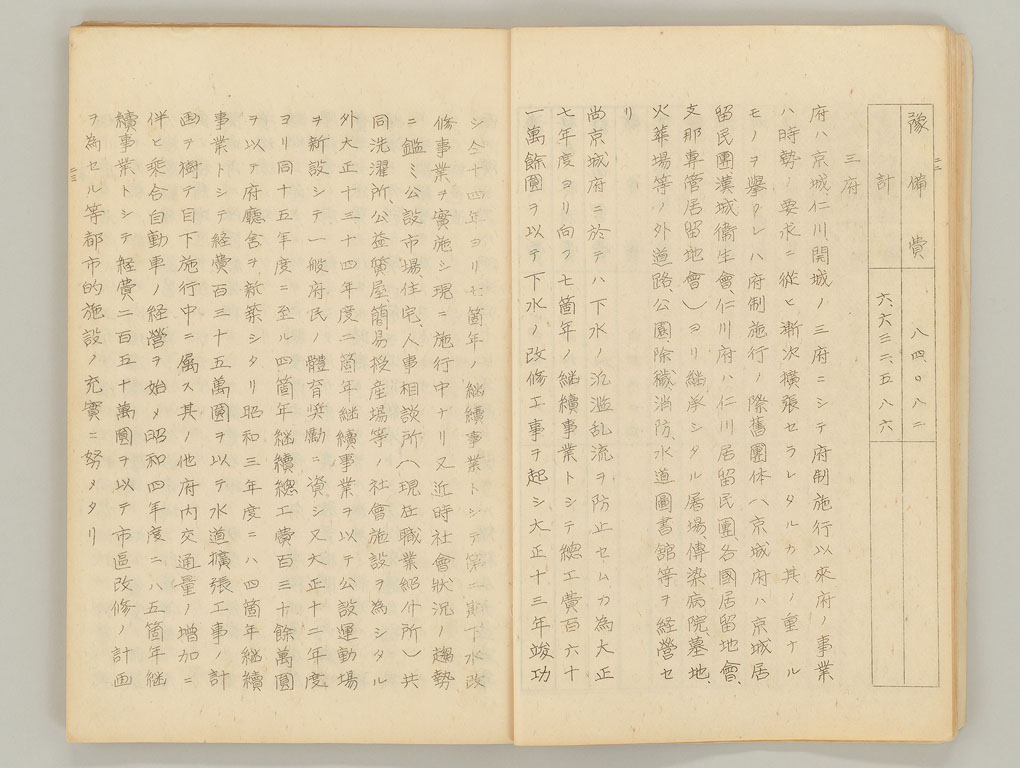 二二
豫備費 八四〇八二
計 六六三二五八六
三府
府ハ京城仁川開城ノ三府ニシテ府制施行以來府ノ事業
ハ時勢ノ要求ニ從ヒ漸次擴張セラレタルカ其ノ重ナル
モノヲ擧クレハ府制施行ノ際舊團体(京城府ハ京城居
留民團漢城衞生會、仁川府ハ仁川居留民團、各國居留地會、
支那專管居留地會)ヨリ繼承シタル屠場、傳染病院、墓地、
火葬場等ノ外道路公園除穢、消防、水道圖書館等ヲ經營セ
リ
尚京城府ニ於テハ下水ノ氾滥乱流ヲ防止セムカ為大正
七年度ヨリ向フ七箇年ノ継續事業トシテ總工費百六十
一萬餘圓ヲ以テ下水ノ改修工事ヲ起シ大正十三年竣功
シ今十四年ヨリ七箇年ノ継續事業トシテ第二期下水改
修事業ヲ實施シ現ニ施行中ナリ又近時社會狀況ノ趨勢
ニ鑑ミ公設市場、住宅、人事相談所(現在職業紹介所)共
同洗濯所、公益質屋、簡易授産場等ノ社會施設ヲ為シタル
外大正十三、十四年度二箇年継續事業ヲ以テ公設運動場
ヲ新設シテ一般府民ノ體育奬勵ニ資シ又大正十二年度
ヨリ同十五年度ニ至ル四箇年継續總工費百三十餘萬圓
ヲ以テ府廳舎ヲ新築シタリ昭和三年度ニハ四箇年継續
事業トシテ経費百三十五萬圓ヲ以テ水道擴張工事ノ計
画ヲ樹テ目下施行中ニ属ス其ノ他府内交通量ノ増加ニ
伴ヒ乘合自動車ノ経營ヲ始メ昭和四年度ニハ五箇年継
續事業トシテ経費二百五十萬圓ヲ以テ市區改修ノ計画
ヲ為セル等都市的施設ノ充實ニ努メタリ
二三